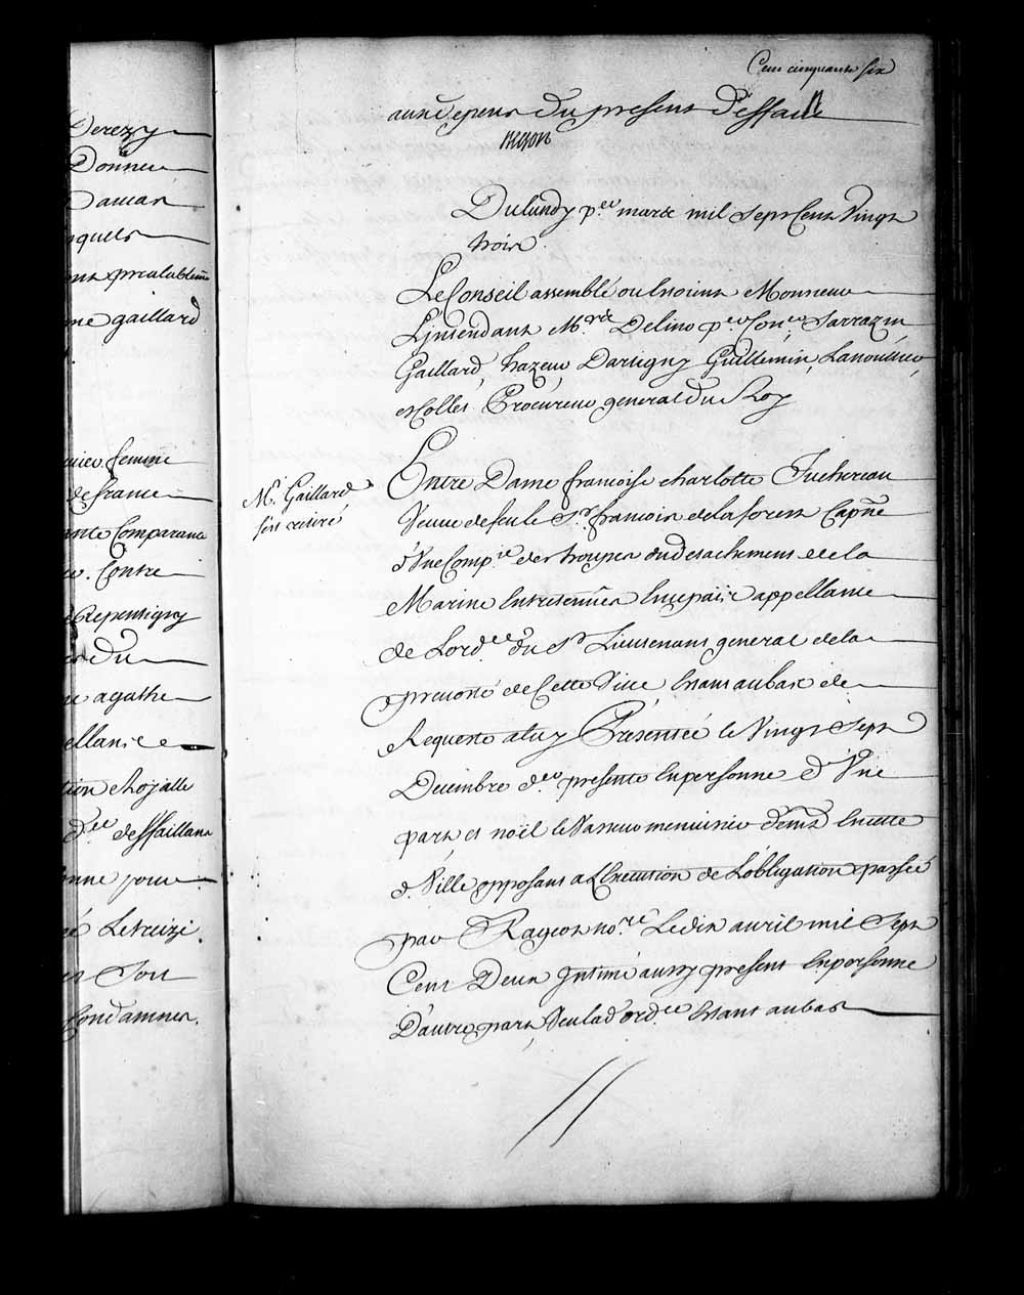 Derezy
Donneu
Damar
sques
prealablem
me gaillard
femme
de france
ante Comparane
Contre
Repentigny
du
agathe
ellante
tion Royalle
d.ee deffaillan
onne pour
Letreizi.
Son
Condamner.
Cent cinquante six
aux depens du present deffaut
Begon
Du lundy p.er mars mil sept Cent Vingt
trois
Le Conseil assemblé ou Estoient Monsieur
L'jntendant M.rs Delino p.er Con.er Sarrazin
Gaillard, hazeur, Dartigny Guillemin, Lanoullier,
et Collet Procureur general du Roy
M.r Gaillard
s'est retiré
Entre Dame francoise charlotte Juchereau
Veuve de feu le S.r francois de la forest Capne
d'Vne Comp.ie des troupes du detachement de la
Marine Entretenües En ce païs appellante
de Lord.ce du S.r Lieutenant general de la
prevosté de Cette Ville Estant au bas de
Requeste a luy Presentée le Vingt Sept
Decembre d.er presente En personne d'Vne
part et noël le Vasseur menuisier dem.t En cette
d. Ville opposant a L'Execution de L'obligation passée
par Rageot no.re Le dix avril mil Sept
Cent Deux Jntimé aussy present En personne
D'autre part, Veu lad ord.ce Estant au bas